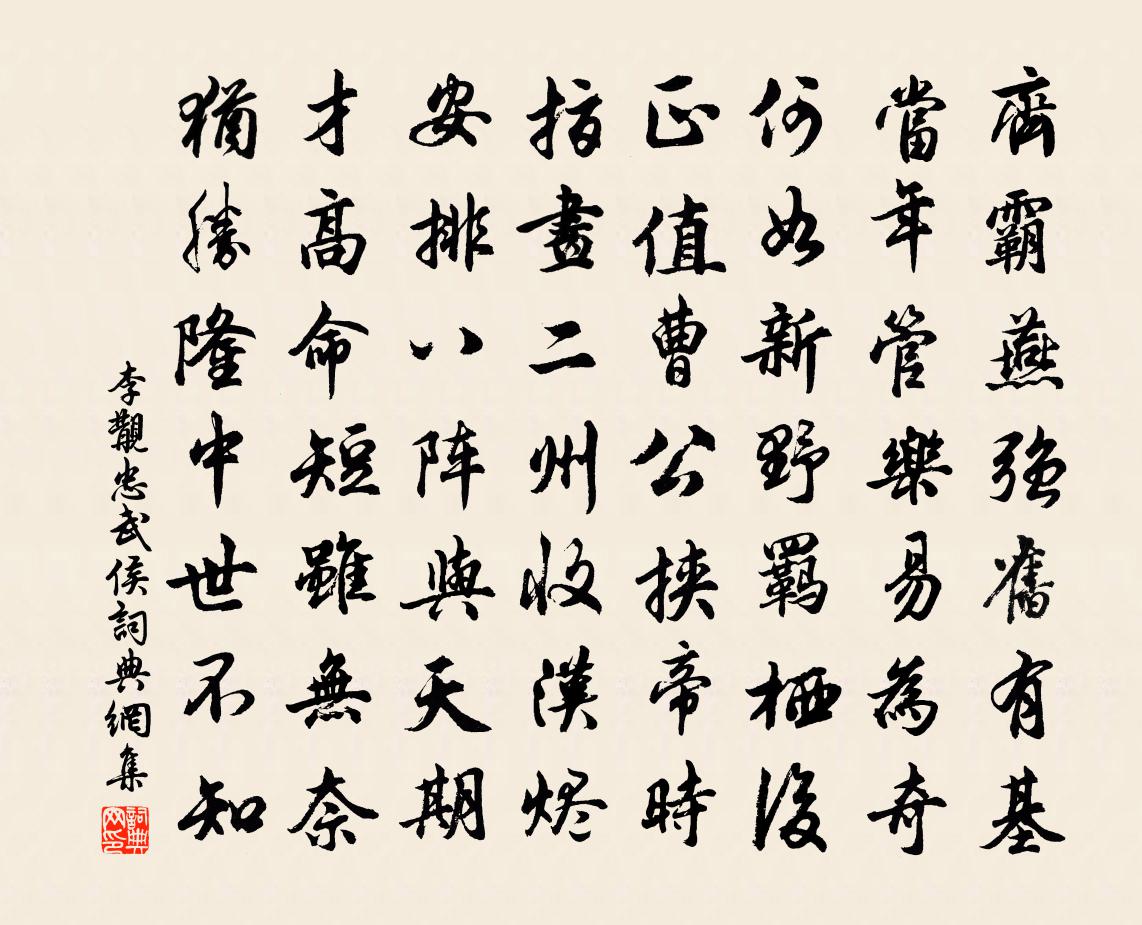 齊霸燕強舊有基
當年管樂易為奇
何如新野羈栖後
正值曹公挾帝時
指畫二州收漢烬
安排八阵與天期
才高命短雖無奈
猶勝隆中世不知
李觀忠武侯詞典網集
詞典网印